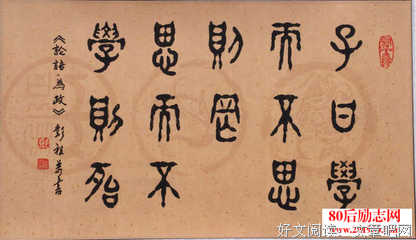 子曰學
而不思
則罔
思而不
學則殆
《論語·為政》書
好文阅读
80后励志网
www.201980.com